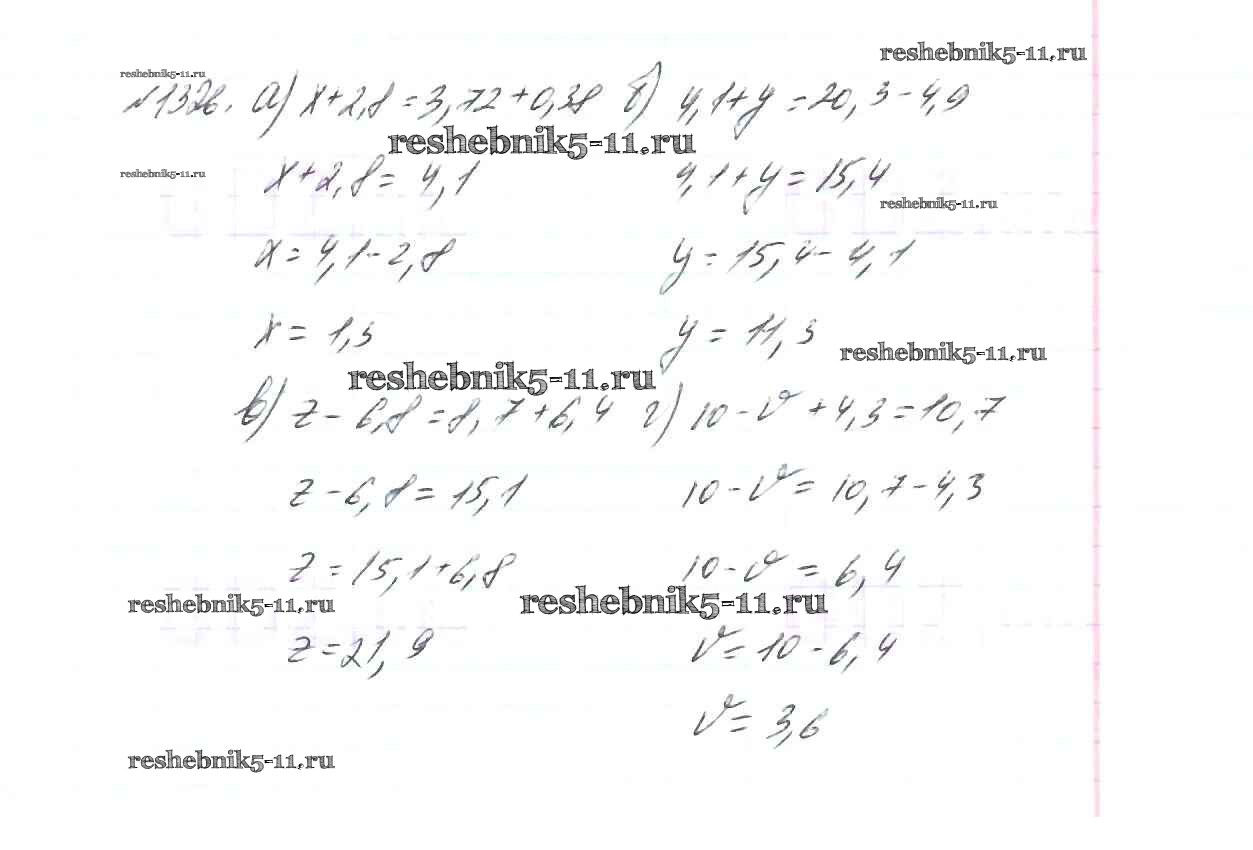 reshebnik5-11.ru
reshebnik5-11.ru
№1326. а) x+2,8=3,72+0,38 б) 4,1+y=20,3-4,9
reshebnik5-11.ru
reshebnik5-11.ru
x+2,8=4,1 4,1+y=15,4
reshebnik5-11.ru
x=4,1-2,8 y=15,4-4,1
x=1,3 y=11,3
reshebnik5-11.ru
reshebnik5-11.ru
в) z-6,8=8,7+6,4 г) 10-v+4,3=10,7
z-6,8=15,1 10-v=10,7-4,3
z=15,1+6,8 10-v=6,4
reshebnik5-11.ru
reshebnik5-11.ru
z=21,9 v=10-6,4
v=3,6
reshebnik5-11.ru